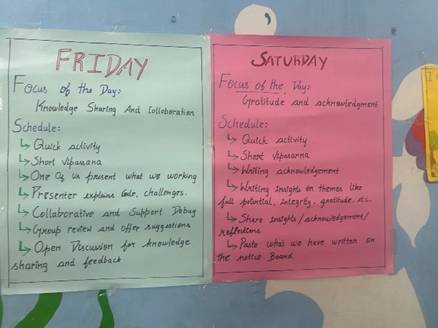 FRIDAY
Focus of the Day:
Knowledge Sharing And Collaboration
Schedule:
Quick activity
Short Vipasana
One of us present what we working
Presenter explains code, challenges.
Collaborative and Support Debug
Group review and offer suggestions
Open Discussion for knowledge
sharing and feedback
SATURDAY
Focus of the Day:
Gratitude and acknowledgment
Schedule:
Quick activity
Short Vipasanna
Writing acknowledgement
Writing insights on themes like
full potential, integrity, gratitude,
Share insights/acknowledgement/
reflections
Paste what we have written on
the notice Board.